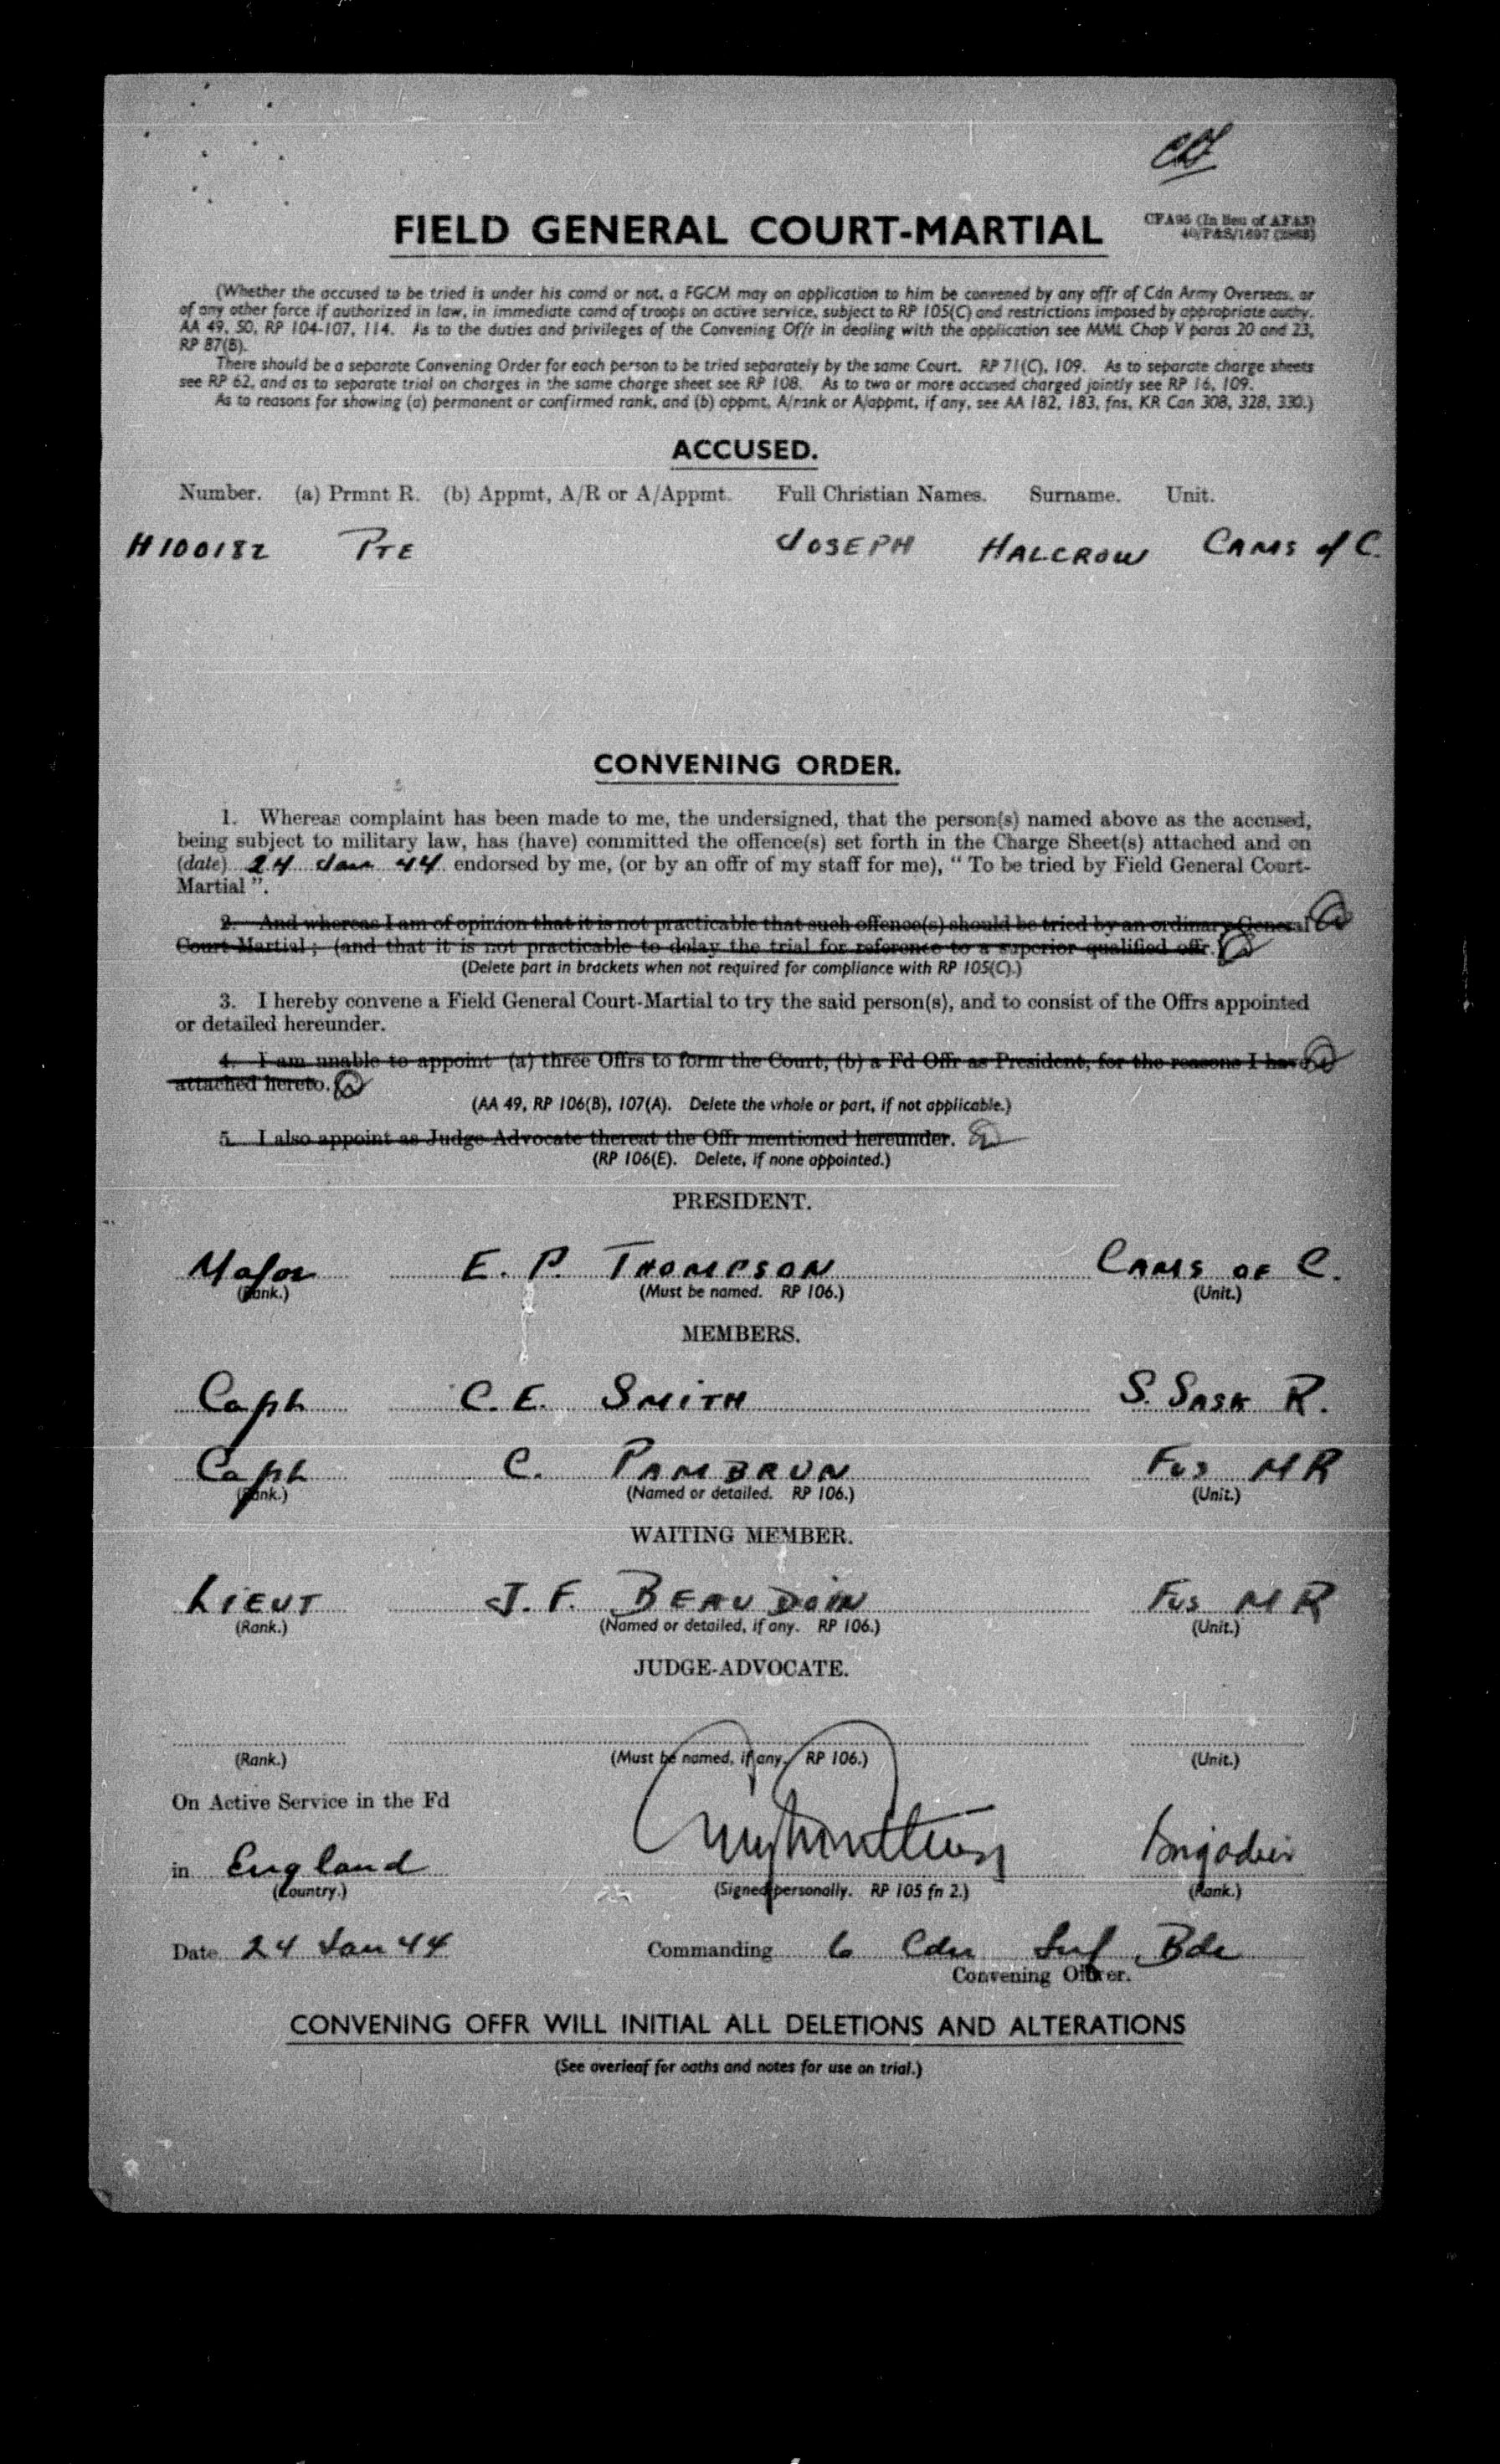 FIELD GENERAL COURT-MARTIAL
CFA95 (In lieu of AFA3)
(Whether the accused to be tried is under his comd or not, a FGCM may on application to him be convened by any offr of Cdn Army Overseas, or
of any other force if authorized in law, in immediate comd of troops on active service, subject to RP 105(C) and restrictions imposed by appropriate authy.
AA 49, 50, RP 104-107, 114. As to the duties and privileges of the Convening Offr in dealing with the application see MML Chap V paras 20 and 23,
RP 87(B).
There should be a separate Convening Order for each person to be tried separately by the same Court. RP 71(C), 109. As to separate charge sheets
see RP 62, and as to separate trial on charges in the same charge sheet see RP 108. As to two or more accused charged jointly see RP 16, 109.
As to reasons for showing (a) permanent or confirmed rank, and (b) appmt, A/rank or A/appmt, if any, see AA 182, 183, fns, KR Can 308, 328, 330.)
ACCUSED.
Number. (a) Prmnt R. (b) Appmt, A/R or A/Appmt. Full Christian Names. Surname. Unit.
H100182 PTE JOSEPH HALCROW CAMS of C.
CONVENING ORDER.
1. Whereas complaint has been made to me, the undersigned, that the person(s) named above as the accused,
being subject to military law, has (have) committed the offence(s) set forth in the Charge Sheet(s) attached and on
(date) 24 Jan 44 endorsed by me, (or by an offr of my staff for me), " To be tried by Field General Court-
Martial ".
2. And whereas I am of opinion that it is not practicable that such offence(s) should be tried by an ordinary General
Court-Martial ; (and that it is not practicable to delay the trial for reference to a superior qualified offr.)
(Delete part in brackets when not required for compliance with RP 105(C).)
3. I hereby convene a Field General Court-Martial to try the said person(s), and to consist of the Offrs appointed
or detailed hereunder.
4. I am unable to appoint (a) three Offrs to form the Court, (b) a Fd Offr as President, for the reasons I have
attached hereto.
(AA 49, RP 106(B), 107(A). Delete the whole or part, if not applicable.)
5. I also appoint as Judge-Advocate thereat the Offr mentioned hereunder.
(RP 106(E). Delete, if none appointed.)
PRESIDENT.
Major E. P. THOMPSON CAMS OF C.
(Rank.) (Must be named. RP 106.) (Unit.)
MEMBERS.
Capt C. E. SMITH S. SASK R.
Capt C. PAMBRUN Fus MR
(Rank.) (Named or detailed. RP 106.) (Unit.)
WAITING MEMBER.
LIEUT J. F. BEAUDOIN Fus MR
(Rank.) (Named or detailed, if any. RP 106.) (Unit.)
JUDGE-ADVOCATE.
(Rank.) (Must be named, if any. RP 106.) (Unit.)
On Active Service in the Fd
in England Brigadier
(Country.) (Signed personally. RP 105 fn 2.) (Rank.)
Date 24 Jan 44 Commanding 6 Cdn Inf Bde
Convening Officer.
CONVENING OFFR WILL INITIAL ALL DELETIONS AND ALTERATIONS
(See overleaf for oaths and notes for use on trial.)